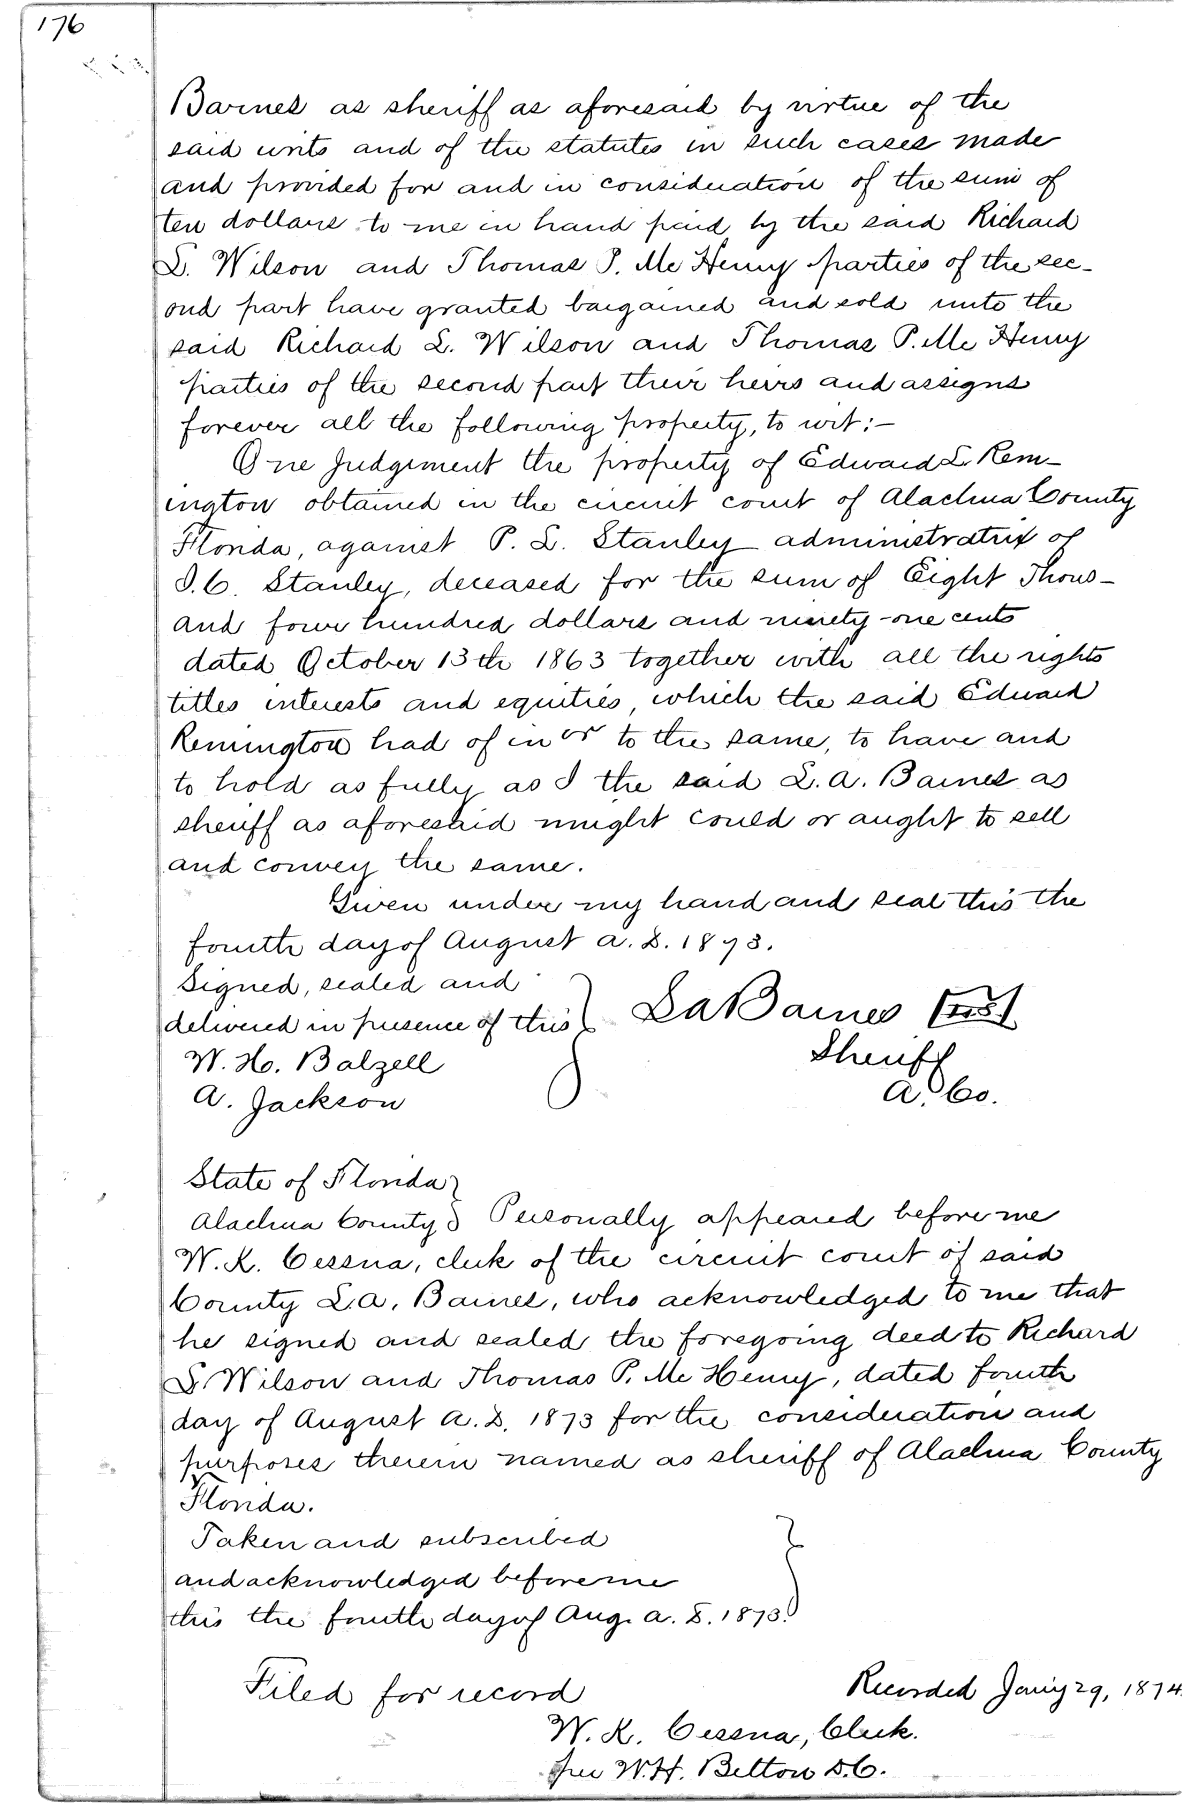 176
Barnes as sheriff as aforesaid by virtue of the
said writs and of the statutes in such cases made
and provided for and in consideration of the sum of
ten dollars to me in hand paid by the said Richard
L. Wilson and Thomas P. Mc Henry parties of the sec-
ond part have granted bargained and sold unto the
said Richard L. Wilson and Thomas P. Mc Henry
parties of the second part their heirs and assigns
forever all the following property, to wit:-
One Judgement the property of Edward L. Rem-
ington obtained in the circuit court of Alachua County
Florida, against P. L. Stanley administratrix of
I. C. Stanley, deceased for the sum of Eight Thous-
and four hundred dollars and ninety-one cents
dated October 13th 1863 together with all the rights
titles interests and equities, which the said Edward
Remington had of in or to the same, to have and
to hold as fully as I the said L. A. Barnes as
sheriff as aforesaid might could or aught to sell
and convey the same.
Given under my hand and seal this the
fourth day of August A. D. 1873.
Signed, sealed and
delivered in presence of this } L A Barnes
W. H. Balzell Sheriff
A. Jackson A. Co.
State of Florida }
Alachua County } Personally appeared before me
W. K. Cessna, clerk of the circuit court of said
County L. A. Barnes, who acknowledged to me that
he signed and sealed the foregoing deed to Richard
L. Wilson and Thomas P. Mc Henry, dated fourth
day of August A. D. 1873 for the consideration and
purposes therein named as sheriff of Alachua County
Florida.
Taken and subscribed
and acknowledged before me
this the fourth day of Aug. A. D. 1873. }
Filed for record Recorded Jan'y 29, 1874
W. K. Cessna, Clerk.
per W. H. Belton D. C.